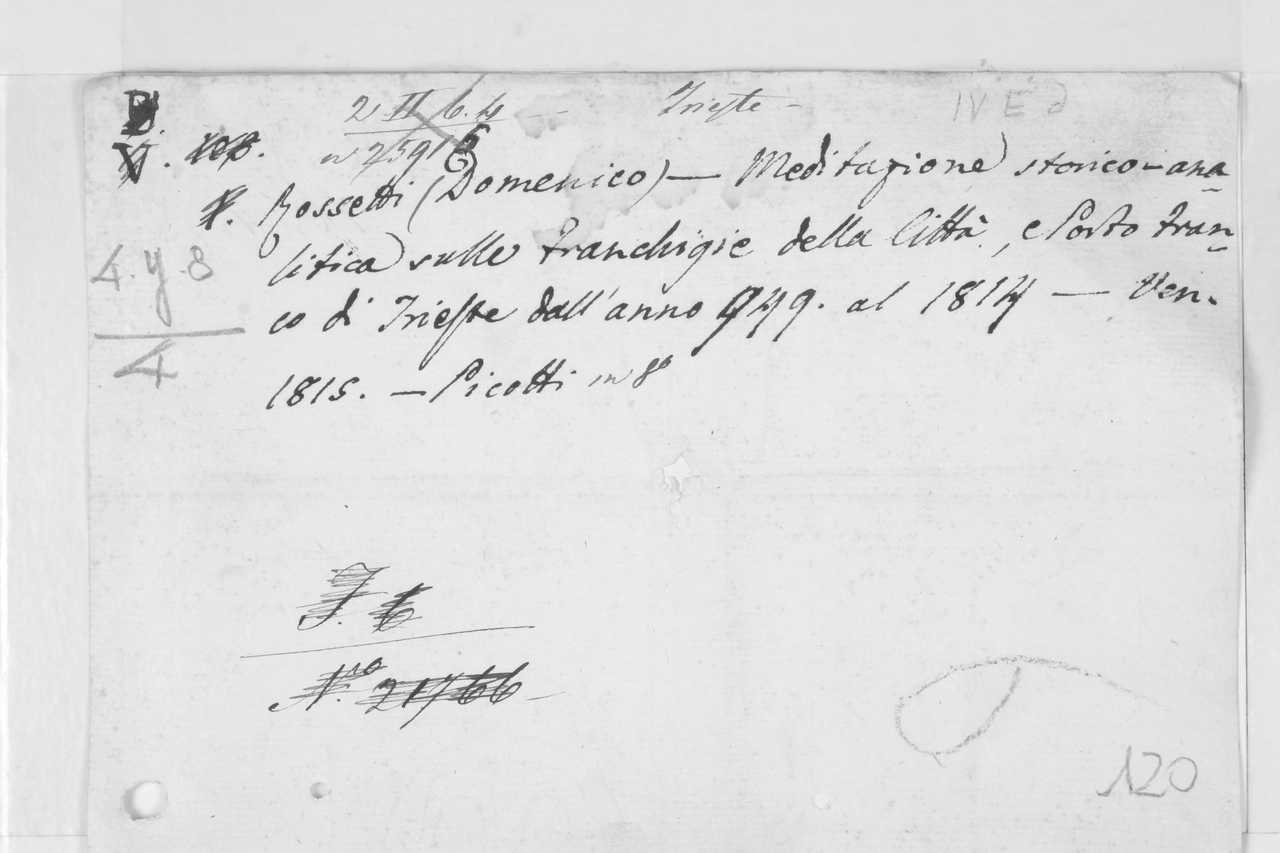 2 II 6. 4 — Trieste — IV E d
V. rep. n 23916
R. Rossetti (Domenico) — Meditazione storico-ana
4. y. 8 litica sulle Franchigie della Città, e Porto Fran
co di Trieste dall'anno 949. al 1814 — Ven.
4
1815. — Picotti in 8º
J. 6
Nro 21766
120